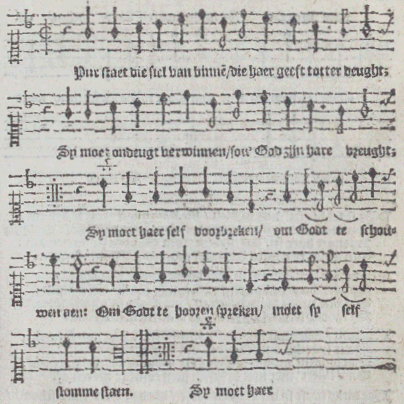 Pur staet die siel van binnē/die haer geeft tot ter deught:
Sy moet ondeugt verwinnen/sou' God zijn hare vreught:
Sy moet haer self voorbzeken/ om Godt te schou-
wen aen: Om Godt te hooren spzeken/ moet sy self
stomme staen. Sy moet haer